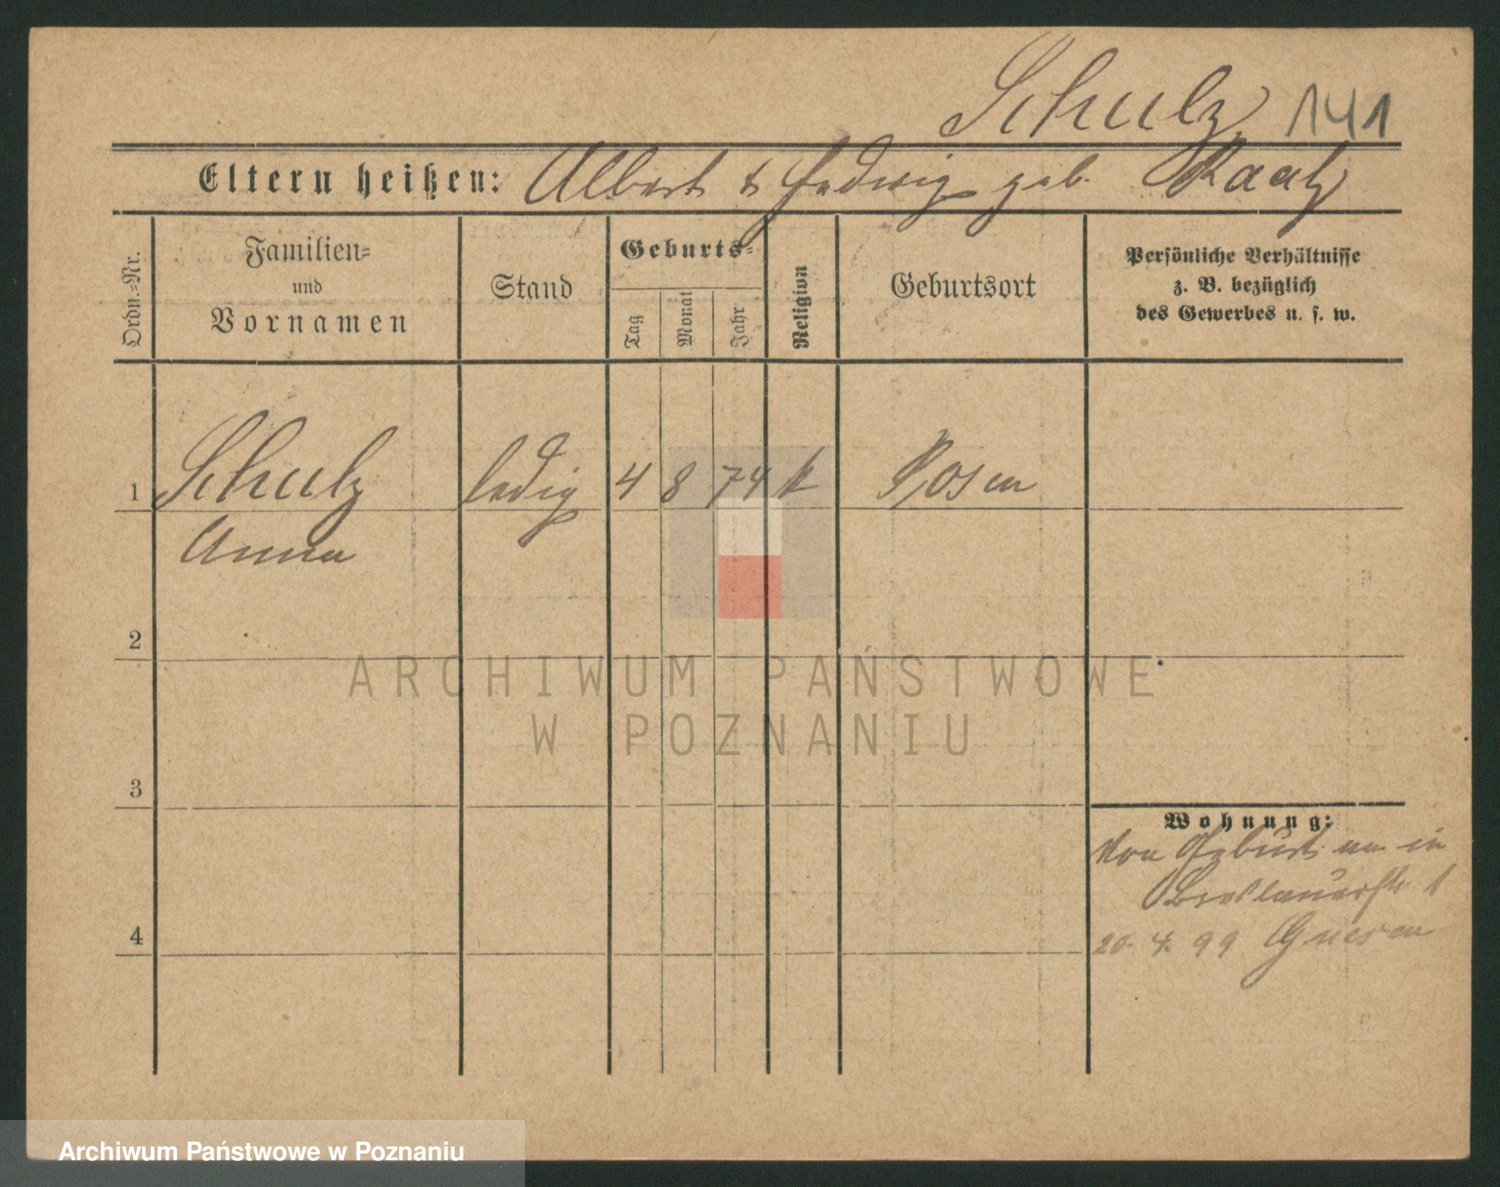 Schulz 141
Eltern heißen: Albert & Hedwig geb. Raatz
Ordn.-Nr.
Familien-
und
Vornamen
Stand
Geburts-
Tag
Monat
Jahr
Religion
Geburtsort
Persönliche Verhältnisse
z. B. bezüglich
des Gewerbes u. s. w.
1 Schulz ledig 4 8 74 k Posen
Anna
2
ARCHIWUM PAŃSTWOWE
W POZNANIU
3
Wohnung:
Von Geburt an in
Breslauerstr 1
4
20. 4. 99 Gnesen
Archiwum Państwowe w Poznaniu